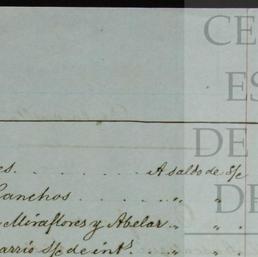 CE
ES
DE
DE
es. . . . . . . . A saldo de S/c
Ranchos . . . . . . " "
Miraflores y Abelar . . " "
arrio S/c de int.s . . " "